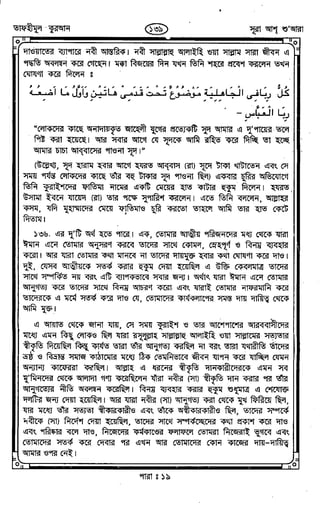 তাফহীমুল কুরআন
১৩৯
সূরা আশ্ শু'আরা
দাওয়াতের ব্যাপারে নবী আন্তরিক। নবী সাল্লাল্লাহু আলাইহি ওয়া সাল্লাম সারা জীবন এ
পদ্ধতি অবলম্বন করে গেছেন। মক্কা বিজয়ের দিন যখন তিনি শহরে প্রবেশ করলেন তখন
ঘোষণা করে দিলেন ঃ
كُلُّ رِبًا فِي الْجَاهِلِيَّةِ مَوْضُوعٌ تَحْتَ قَدَمَيَّ هَاتَيْنِ وَأَوَّلُ مَا أَضَعُهُ
رِبَا الْعَبَّاسِ -
"লোকদের কাছে অনাদায়কৃত জাহেলী যুগের প্রত্যেকটি সূদ আমার এ দু'পায়ের তলে
পিষ্ট করা হয়েছে। আর সবার আগে যে সূদকে আমি রহিত করে দিচ্ছি তা হচ্ছে
আমার চাচা আব্বাসের পাওনা সূদ।"
(উল্লেখ্য, সূদ হারাম হবার আগে হযরত আব্বাস (রা) সূদে টাকা খাটাতেন এবং সে
সময় পর্যন্ত লোকদের কাছে তাঁর বহু টাকার সূদ পাওনা ছিল) একবার চুরির অভিযোগে
তিনি কুরাইশদের ফাতিমা নামের একটি মেয়ের হাত কাটার হুকুম দিলেন। হযরত
উসামা ইবনে যায়েদ (রা) তার পক্ষে সুপারিশ করলেন। এতে তিনি বললেন, আল্লাহর
কসম, যদি মুহাম্মদের মেয়ে ফাতিমাও চুরি করতো তাহলে আমি তার হাত কেটে
দিতাম।
১৩৬. এর দু'টি অর্থ হতে পারে। এক, তোমার আত্মীয় পরিজনদের মধ্য থেকে যারা
ঈমান এনে তোমার অনুসরণ করবে তাদের সাথে কোমল, স্নেহপূর্ণ ও বিনম্র ব্যবহার
করো। আর যারা তোমার কথা মানবে না তাদের দায়মুক্ত হবার কথা ঘোষণা করে দাও।
দুই, যেসব আত্মীয়কে সতর্ক করার হুকুম দেয়া হয়েছিল এ উক্তি কেবলমাত্র তাদের
সাথে সম্পর্কিত নয় বরং এটি ব্যাপকভাবে সবার জন্য। অর্থাৎ যারা ঈমান এনে তোমার
আনুগত্য করে তাদের সাথে বিনম্র আচরণ করো এবং যারাই তোমার নাফরমানি করে
তাদেরকে এ মর্মে সতর্ক করে দাও যে, তোমাদের কার্যকলাপের সমস্ত দায় দায়িত্ব থেকে
আমি মুক্ত।
এ আয়াত থেকে জানা যায়, সে সময় কুরাইশ ও তার আশেপাশের আরববাসীদের
মধ্যে এমন কিছু লোকও ছিল যারা রসূলুল্লাহ সাল্লাল্লাহু আলাইহি ওয়া সাল্লামের সত্যতার
স্বীকৃতি দিয়েছিল কিন্তু কার্যত তারা তাঁর আনুগত্য করছিল না বরং তারা যথারীতি তাদের
ভ্রষ্ট ও বিভ্রান্ত সমাজ কাঠামোর মধ্যে ঠিক তেমনিভাবে জীবন যাপন করে যাচ্ছিল যেমন
অন্যান্য কাফেররা করছিল। আল্লাহ এ ধরনের স্বীকৃতি দানকারীদেরকে এমন সব
মু'মিনদের থেকে আলাদা গণ্য করেছিলেন যাঁরা নবীর (সা) স্বীকৃতি দান করার পর তাঁর
আনুগত্যের নীতি অবলম্বন করেছিল। বিনম্র ব্যবহার করার হুকুম শুধুমাত্র এ শেষোক্ত
দলটির জন্য দেয়া হয়েছিল। আর যারা নবীর (সা) আনুগত্য করা থেকে মুখ ফিরিয়ে ছিল,
যার মধ্যে তাঁর সত্যতা স্বীকারকারীও এবং তাঁকে অস্বীকারকারীও ছিল, তাদের সম্পর্কে
নবীকে (সা) নির্দেশ দেয়া হয়েছিল, তাদের সাথে সম্পর্কচ্ছেদের কথা প্রকাশ করে দাও
এবং পরিষ্কার বলে দাও, নিজেদের কর্মকাণ্ডের ফলাফল তোমরা নিজেরাই ভুগবে এবং
তোমাদের সতর্ক করে দেবার পর এখন আর তোমাদের কোন কাজের দায়-দায়িত্ব
আমার ওপর নেই।
পারা ঃ ১৯